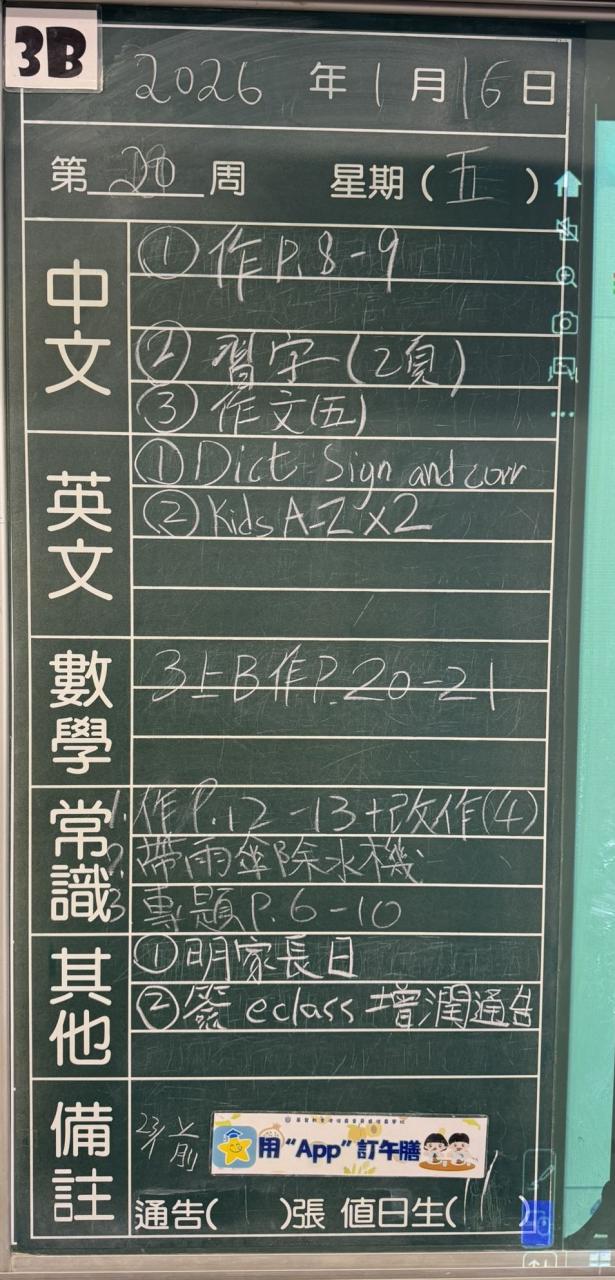 3B
2026 年 1 月 16 日
第 20 周 星期 ( 五 )
中文
① 作 P.8-9
② 習字 (2頁)
③ 作文(五)
英文
① Dict Sign and corr
② Kids A-Z x2
數學
3上B作P.20-21
常識
1. 作P.12-13+改作(4)
2. 帶雨傘除水機
3 專題P.6-10
其他
① 明家長日
② 簽 eclass 增潤通告
備註
前
用 “App” 訂午膳
通告( )張 值日生( 11 )